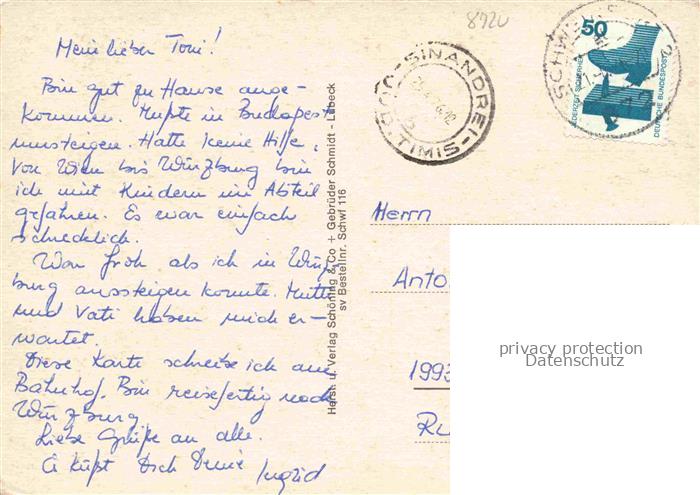 Mein lieber Toni!
Bin gut zu Hause ange-
kommen. Mußte in Budapest
umsteigen. Hatte keine Hilfe,
Von Wien bis Würzburg bin
ich mit Kindern im Abteil
gefahren. Es war einfach
schrecklich.
War froh als ich in Würz-
burg aussteigen konnte. Mutti
und Vati haben mich er-
wartet.
Diese Karte schreibe ich am
Bahnhof. Bin reisefertig nach
Würzburg
Liebe Grüße an alle.
Es küßt Dich Deine Ingrid
Herst. u. Verlag Schöning & Co + Gebrüder Schmidt - Lübeck
sv Bestellnr. Schwf 116
8920
SINANDREI
TIMIS
50
JEDERZEIT SICHERHEIT
DEUTSCHE BUNDESPOST
Herrn
Anto
1993
Ru
privacy protection
Datenschutz